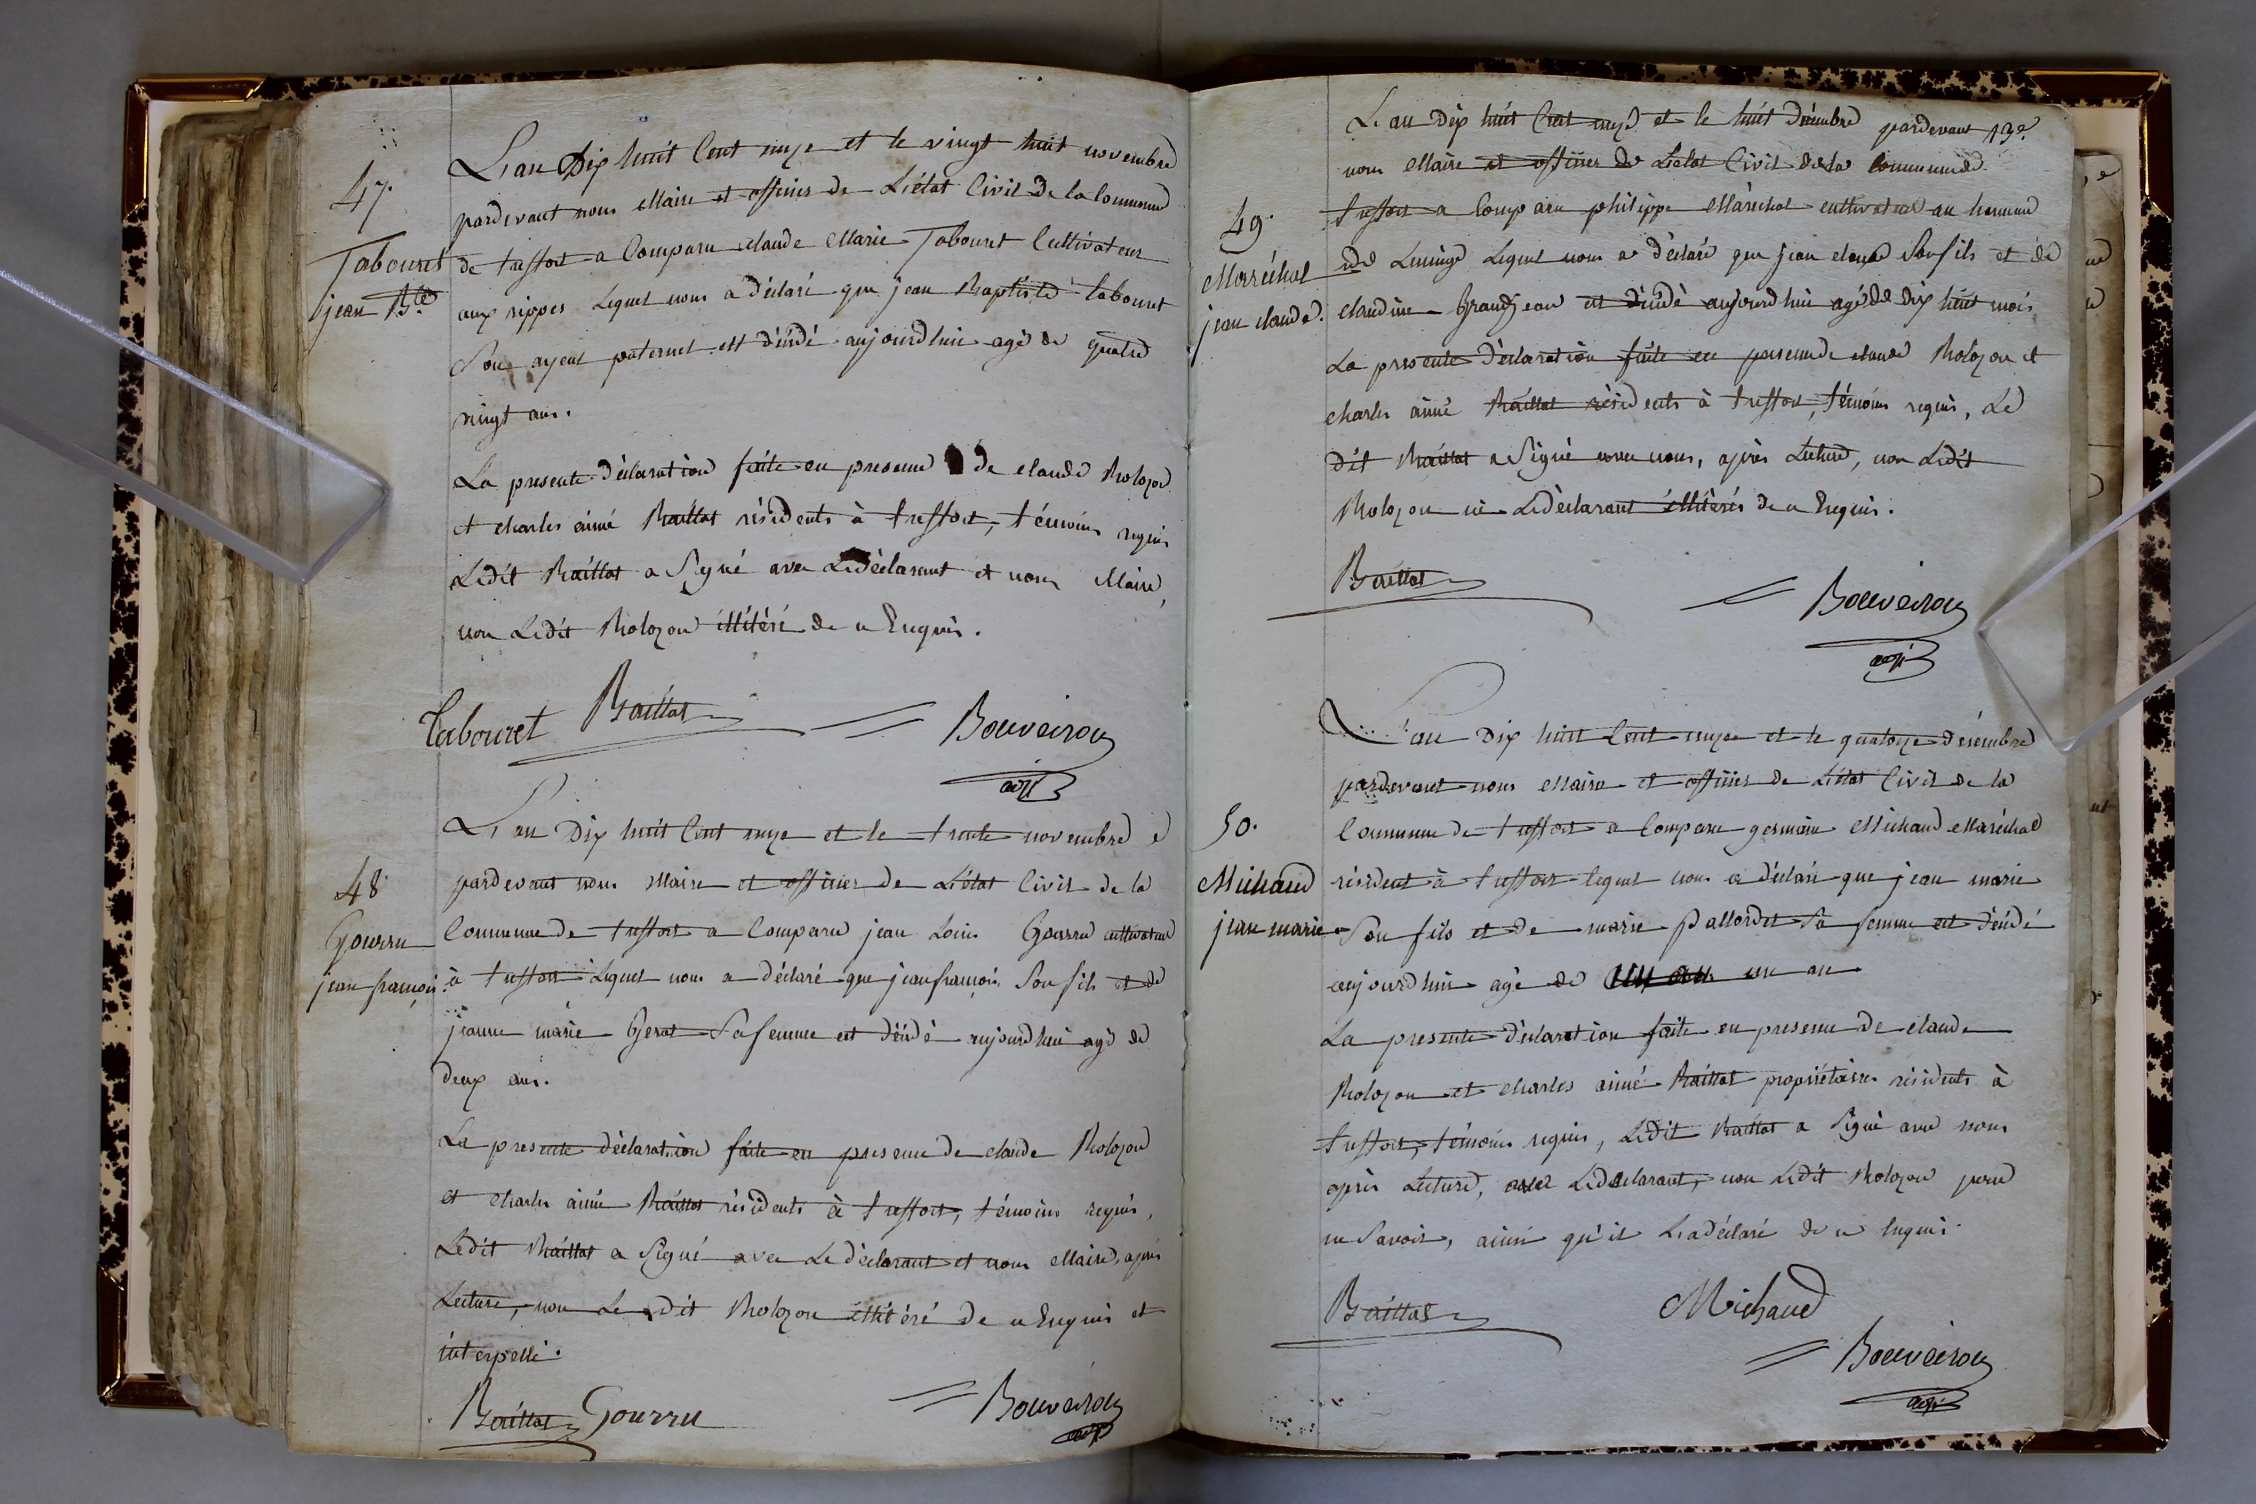 47.
Tabouret
jean Bte
L'an Dix huit Cent onze et le vingt huit novembre
pardevant nous Maire et officier de L'état Civil de la Commune
de treffort a Comparu claude Marie Tabouret Cultivateur
aux rippes Lequel nous a déclaré que jean Baptiste tabouret
Son ayeul paternel est décédé aujourdhui agé de quatre
vingt ans.
La presente déclaration faite en presence de claude Bolozon
et charles aimé Baillat résidents à treffort, témoins requis
Ledit Baillat a Signé avec Ledéclarant et nous Maire,
non Ledit Bolozon illitéré de ce Enquis.
Tabouret Baillat Bouveiron
adjt
48
Gourru
jean françois
L'an Dix huit Cent onze et le trente novembre
pardevant nous Maire et officier de L'état Civil de la
Commune de treffort a Comparu jean Louis Gourru cultivateur
à treffort Lequel nous a déclaré que jean françois Son fils et de
jeanne marie Sa femme est décédé aujourdhui agé de
deux ans.
La presente déclaration faite en presence de claude Bolozon
et charles aimé Baillat résidents à treffort, témoins requis,
Ledit Baillat a Signé avec Le déclarant et nous Maire, après
Lecture, non Le dit Bolozon illitéré de ce Enquis et
interpellé.
Baillat Gourru Bouveiron
adjt
L'an Dix huit Cent onze et le huit décembre pardevant 13e
nous Maire et officier de L'état Civil de la Commune de
49.
Maréchal
jean claude.
treffort a Comparu philippe Maréchal cultivateur au hameau
de Lequel nous a déclaré que jean claude Son fils et de
claudine Grandjean est décédé aujourdhui agé de dix huit mois
La presente déclaration faite en presence de claude Bolozon et
charles aimé Baillat résidents à treffort, témoins requis, Le
dit Baillat a Signé avec nous, après Lecture, non Ledit
Bolozon ni Ledéclarant illitérés de ce Enquis.
Baillat Bouveiron
adjt
L'an Dix huit Cent onze et le quatorze décembre
pardevant nous Maire et officier de L'état Civil de la
50.
Michaud
jean marie
Commune de treffort a Comparu germain Michaud Maréchal
résident à treffort lequel nous a déclaré que jean marie
Son fils et de marie Pallordet Sa femme est décédé
aujourdhui agé de un an
La presente déclaration faite en presence de claude
Bolozon et charles aimé Baillat propriétaires résidents à
treffort, témoins requis, Ledit Baillat a Signé avec nous
après Lecture, avec Ledéclarant, non Ledit Bolozon pour
ne Savoir, ainsi qu'il L'a déclaré de ce Enquis.
Baillat Michaud
Bouveiron
adjt